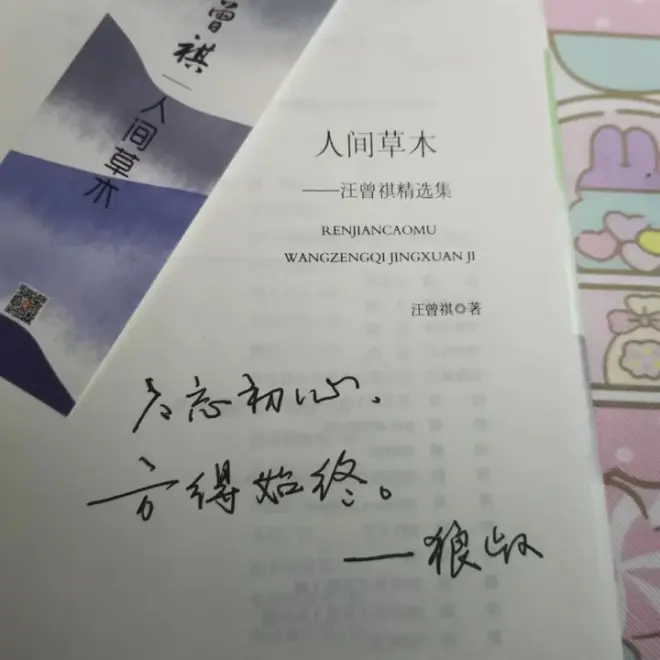 曾祺
人间草木
人间草木
——汪曾祺精选集
RENJIANCAOMU
WANGZENGQI JINGXUAN JI
汪曾祺◎著
不忘初心、
方得始终。
——狼叔